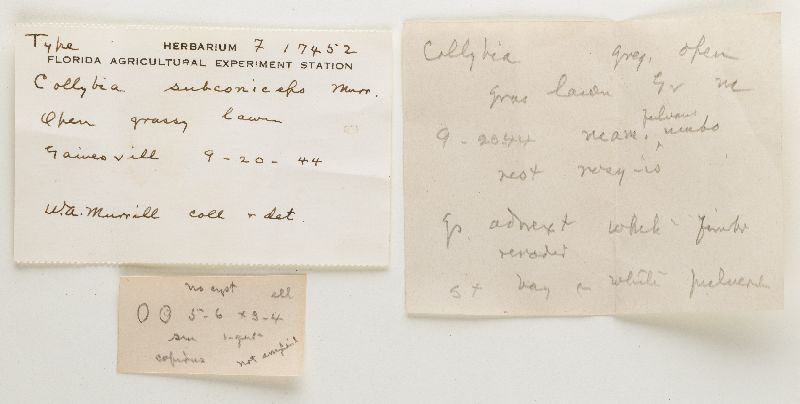 Type HERBARIUM F 17452
FLORIDA AGRICULTURAL EXPERIMENT STATION
Collybia subconiceps Murr.
Open grassy lawn
Gainesvill 9-20-44
W.A. Murrill coll & det.
no cyst ell
5-6 x 3-4
sm 1-gut
copious not amyloid
Collybia greg. open
gras lawn
9-20-44 umbo
rest rosy-is
adnext whit fimbr
st bay white pulverul